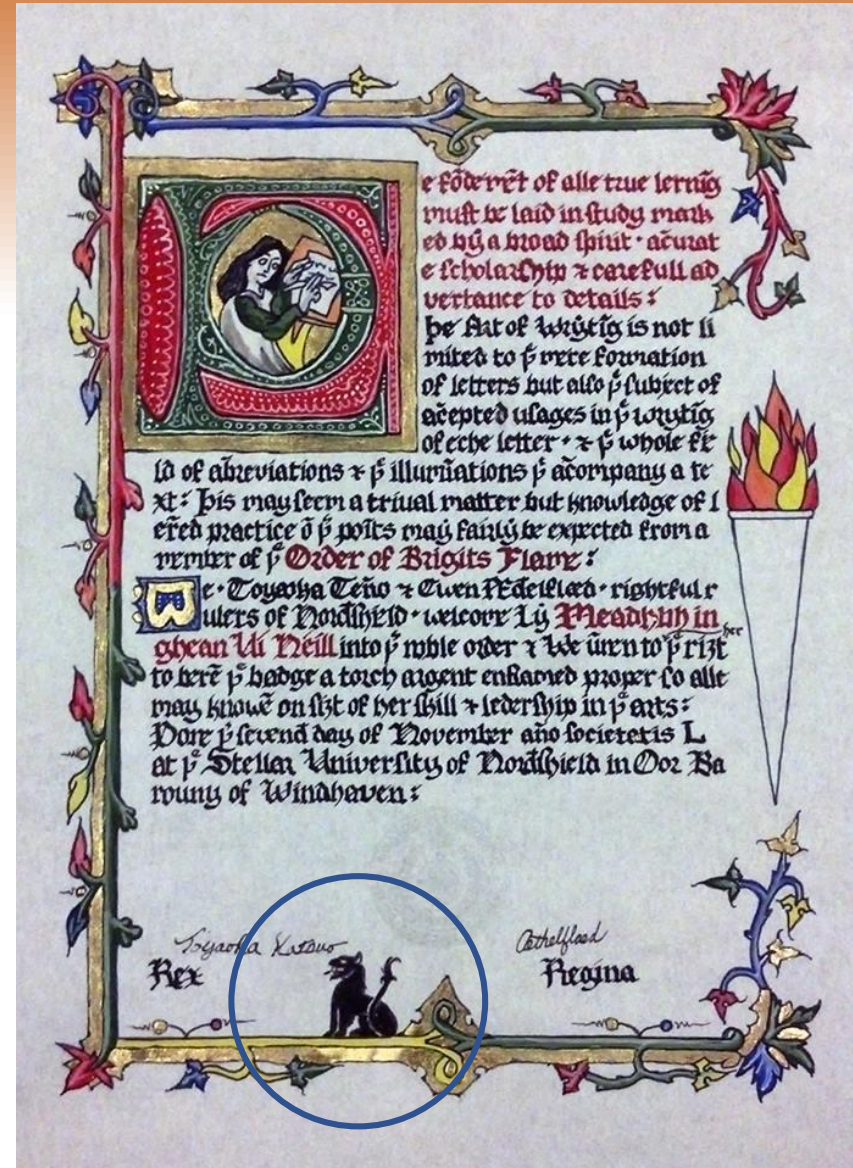 Þe fōdemēt of alle true lernīg
must be laid in study mark
ed by a broad spirit · acurat
e scholarship ⁊ carefull ad
vertance to details :
Þe Art of Wrytīg is not li
mited to þͤ mere formation
of letters but also þͤ subject of
acepted usages in þͤ wrytīg
of eche letter · ⁊ þͤ whole fie
ld of abreviations ⁊ þͤ illumīations þͭ acompany a te
xt : Þis may seem a trival matter but knowledge of l
erēd practice ō þͤ poīts may fairly be expected from a
member of þͤ Order of Brigits Flame :
We · Toyaoha Teño ⁊ Cwen Æðelflæd · rightful r
ulers of Nordshield · welcome Ly Meadhbh in
ghean Ui Neill into þͤ noble order ⁊ We ūren to her þͤ rizt
to berē þͤ badge a torch argent enflamed proper so alle
may knowē on sizt of her skill ⁊ ledership in þͤ arts :
Done þͤ sevend day of November año societetis L
at þͤ Stellar University of Nordshield in Oor Ba
rouny of Windhaven :
Aethelflaed
Rex
Regina